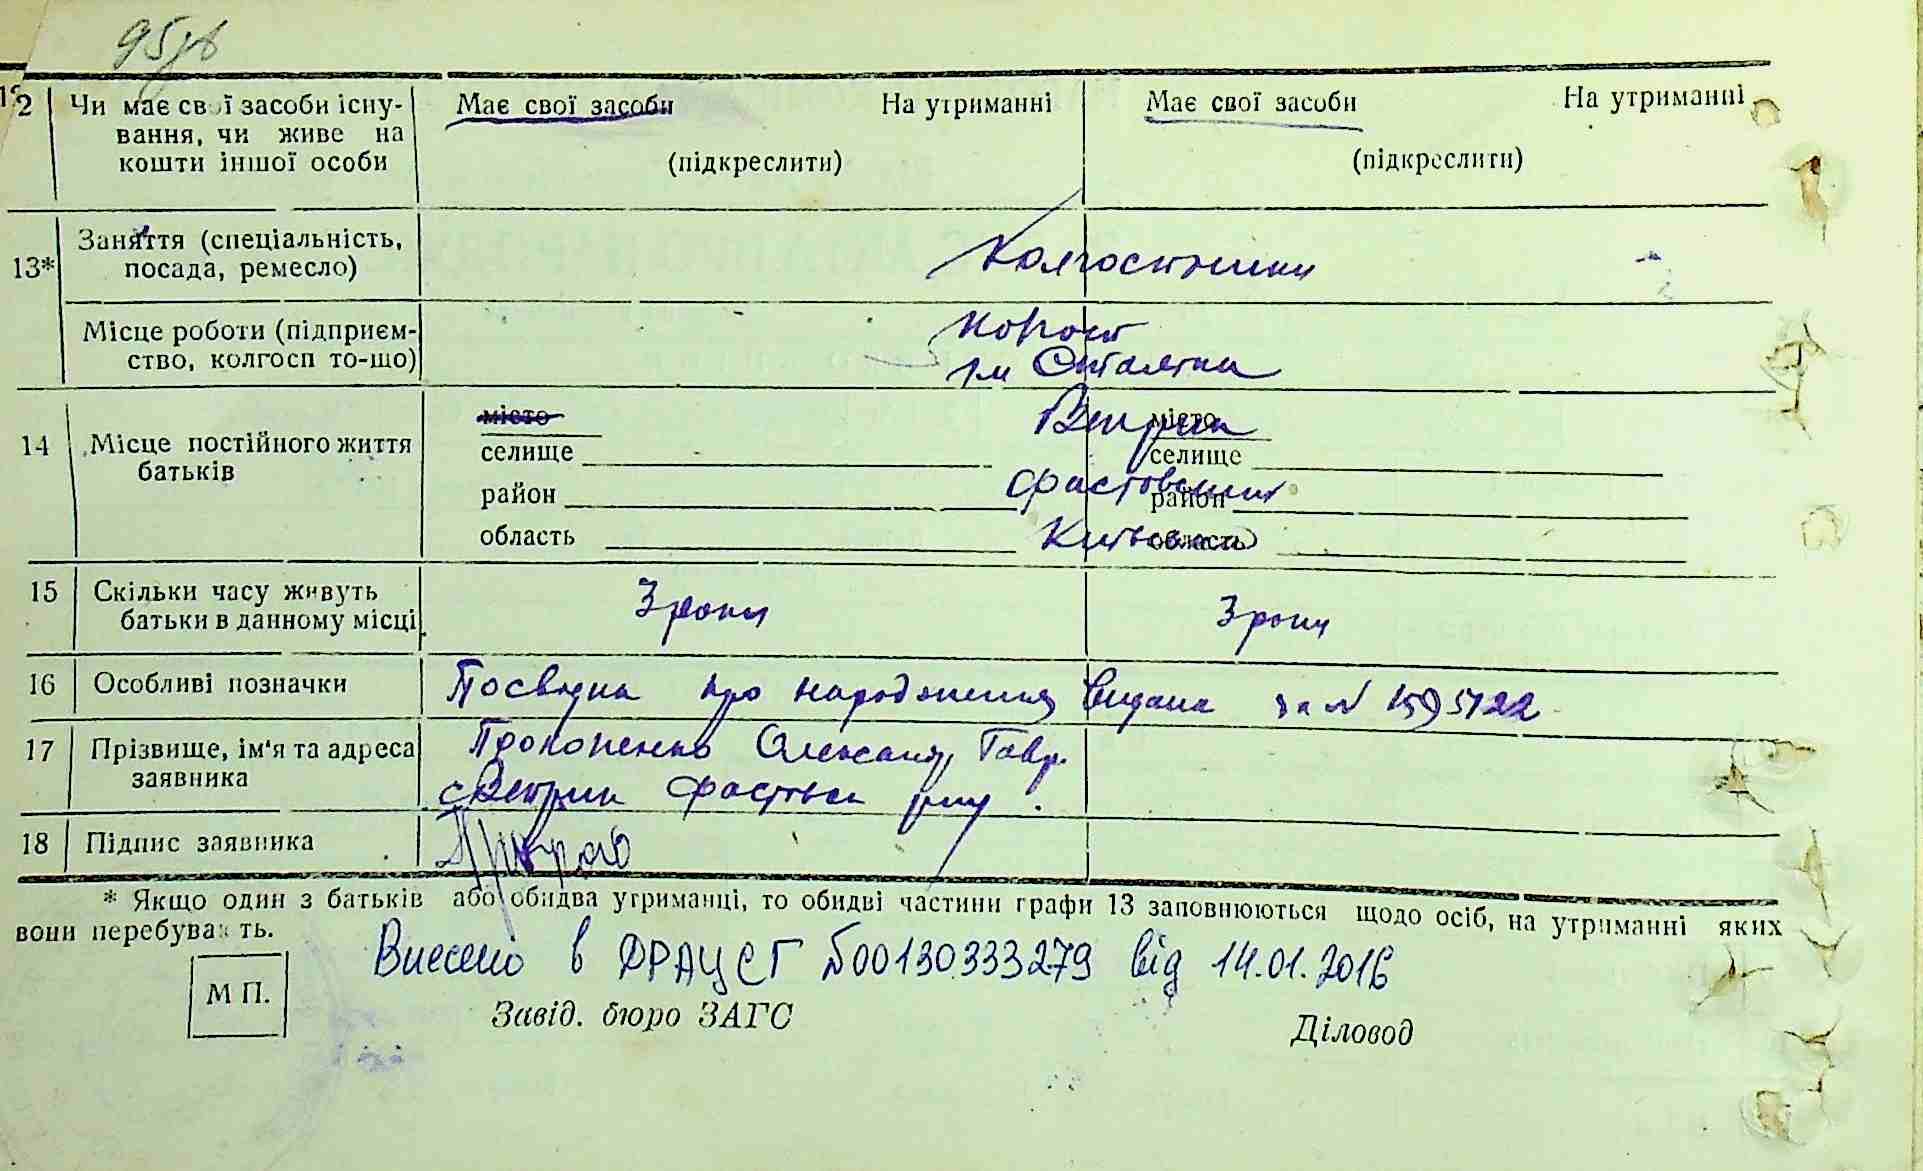 95
12 Чи має свої засоби існу- Має свої засоби На утриманні Має свої засоби На утриманні
вання, чи живе на
кошти іншої особи (підкреслити) (підкреслити)
13* Заняття (спеціальність,
посада, ремесло) Колгоспники
Місце роботи (підприєм-
ство, колгосп то-що) ім Сталіна
14 Місце постійного життя
батьків
місто Веприк місто
селище селище
район Фастовський район
область Київська область
15 Скільки часу живуть
батьки в данному місці 3 роки 3 роки
16 Особливі позначки Посвідка про народження видана за № 1595122
17 Прізвище, ім'я та адреса
заявника
Прокопенко Олександр Гавр.
с Веприк Фастівськ р-ну.
18 Підпис заявника
* Якщо один з батьків або обидва утриманці, то обидві частини графи 13 заповнюються щодо осіб, на утриманні яких
вони перебувають.
Внесено в ДРАЦСГ №00130333279 від 14.01.2016
М П.
Завід. бюро ЗАГС Діловод